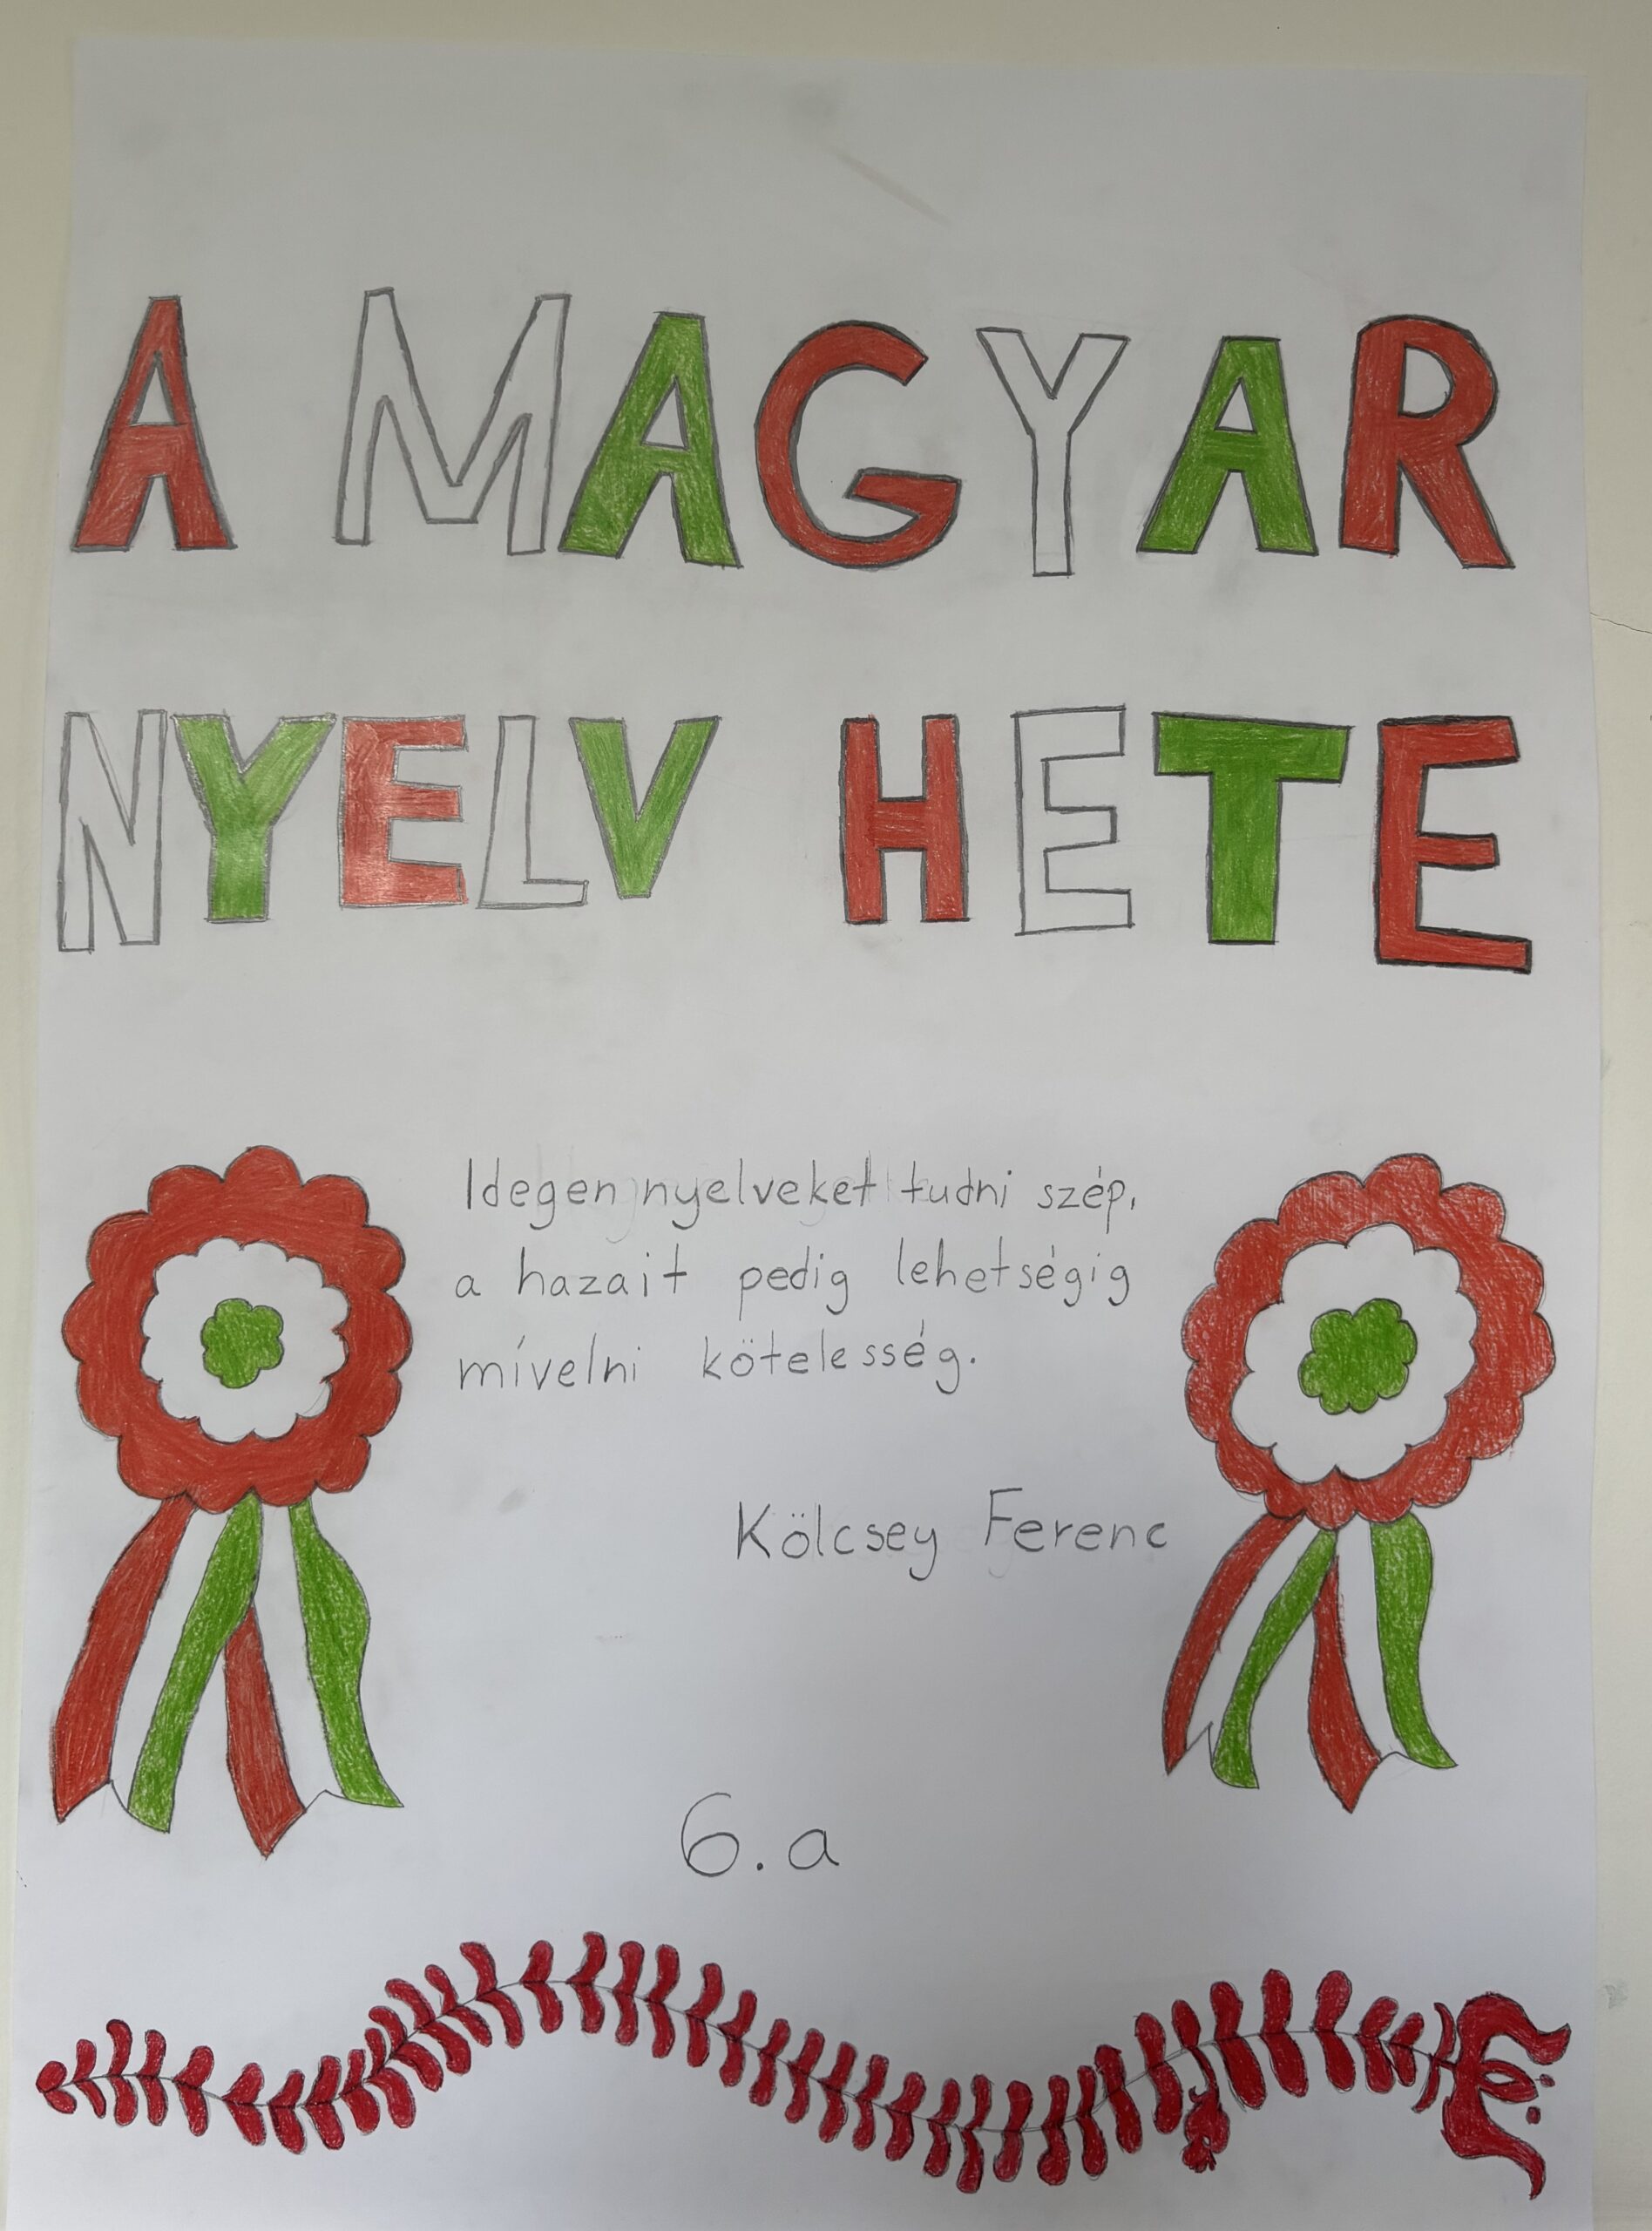 A MAGYAR
NYELV HETE
Idegen nyelveket tudni szép,
a hazait pedig lehetségig
mívelni kötelesség.
Kölcsey Ferenc
6.a